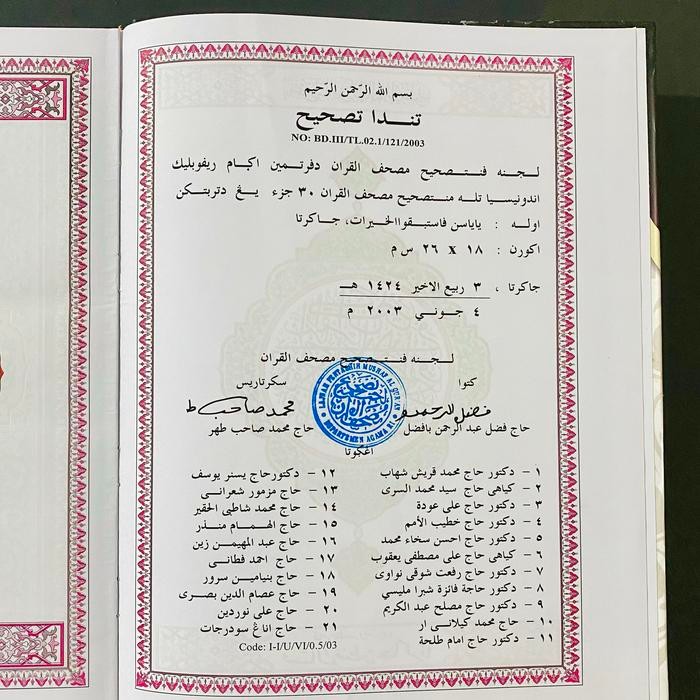 بسم الله الرّحمن الرّحيم
تنــدا تصحيح
NO: BD.III/TL.02.1/121/2003
لـجنـه فنـتـصحيح مصحف القران دفرتـمين اكـام ريفوبليك
اندونيسـيا تله منـتصحيح مصحف القران ٣٠ جزء يـغ دتربتـكن
اوله : ياياسن فاستبقواالخيرات، جـاكرتا
اكورن : ١٨ x ٢٦ س م
جاكرتا ، ٣ ربيع الاخير ١٤٢٤ هـ
٤ جـونـي ٢٠٠٣ م
لـجنـه فنـتـصحيح مصحف القران
كتوا
سكرتاريس
LAJNAH PENTASHIH MUSHAF AL QUR'AN
DEPARTEMEN AGAMA RI
حاج فضل عبد الرحمن بافضل
حاج محمد صاحب طهر
اغـكوتا
١ – دكتور حاج محمد قريش شهاب
٢ – كياهى حاج سيد محمد السرى
٣ – دكتور حاج على عودة
٤ – دكتور حاج خطيب الأمم
٥ – دكتور حاج احسن سخاء محمد
٦ – كياهى حاج على مصطفى يعقوب
٧ – دكتور حاج رفعت شوقى نواوى
٨ – دكتور حاجة فائزة شبرا مليسي
٩ – دكتور حاج مصلح عبد الكريم
١٠ – حاج محمد كيلانـى ار
١١ – دكتور حاج امام طلحة
١٢ – دكتورحاج يسنر يوسف
١٣ – حاج مزمور شعرانـى
١٤ – حاج محمد شاطبى الحقير
١٥ – حاج الهـمـام منـذر
١٦ – حاج عبد المهيمـن زين
١٧ – حاج احمد فطانـى
١٨ – حاج بنيامـين سرور
١٩ – حاج عصام الدين بصـرى
٢٠ – حاج على نوردين
٢١ – حاج اناغ سودرجات
Code: I-I/U/VI/0.5/03